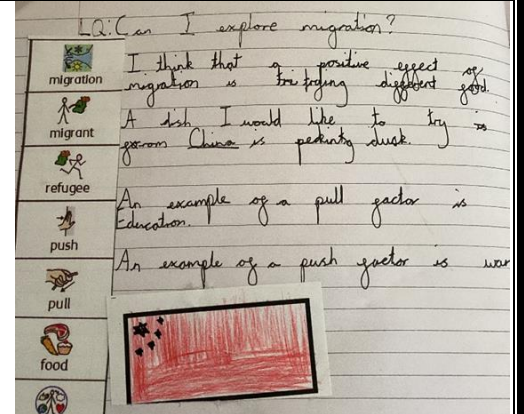 LQ: Can I explore migration?
migration
migrant
refugee
push
pull
food
I think that a positive effect of
migration is trying different food.
A dish I would like to try is
from China is peking duck.
An example of a pull factor is
Education.
An example of a push factor is war